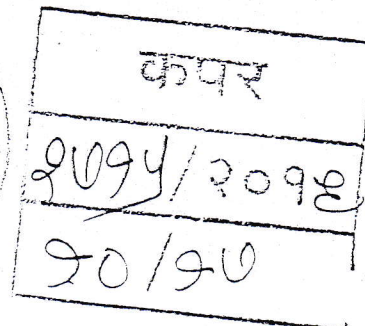 कपर
१७१५/२०१६
१०/१७